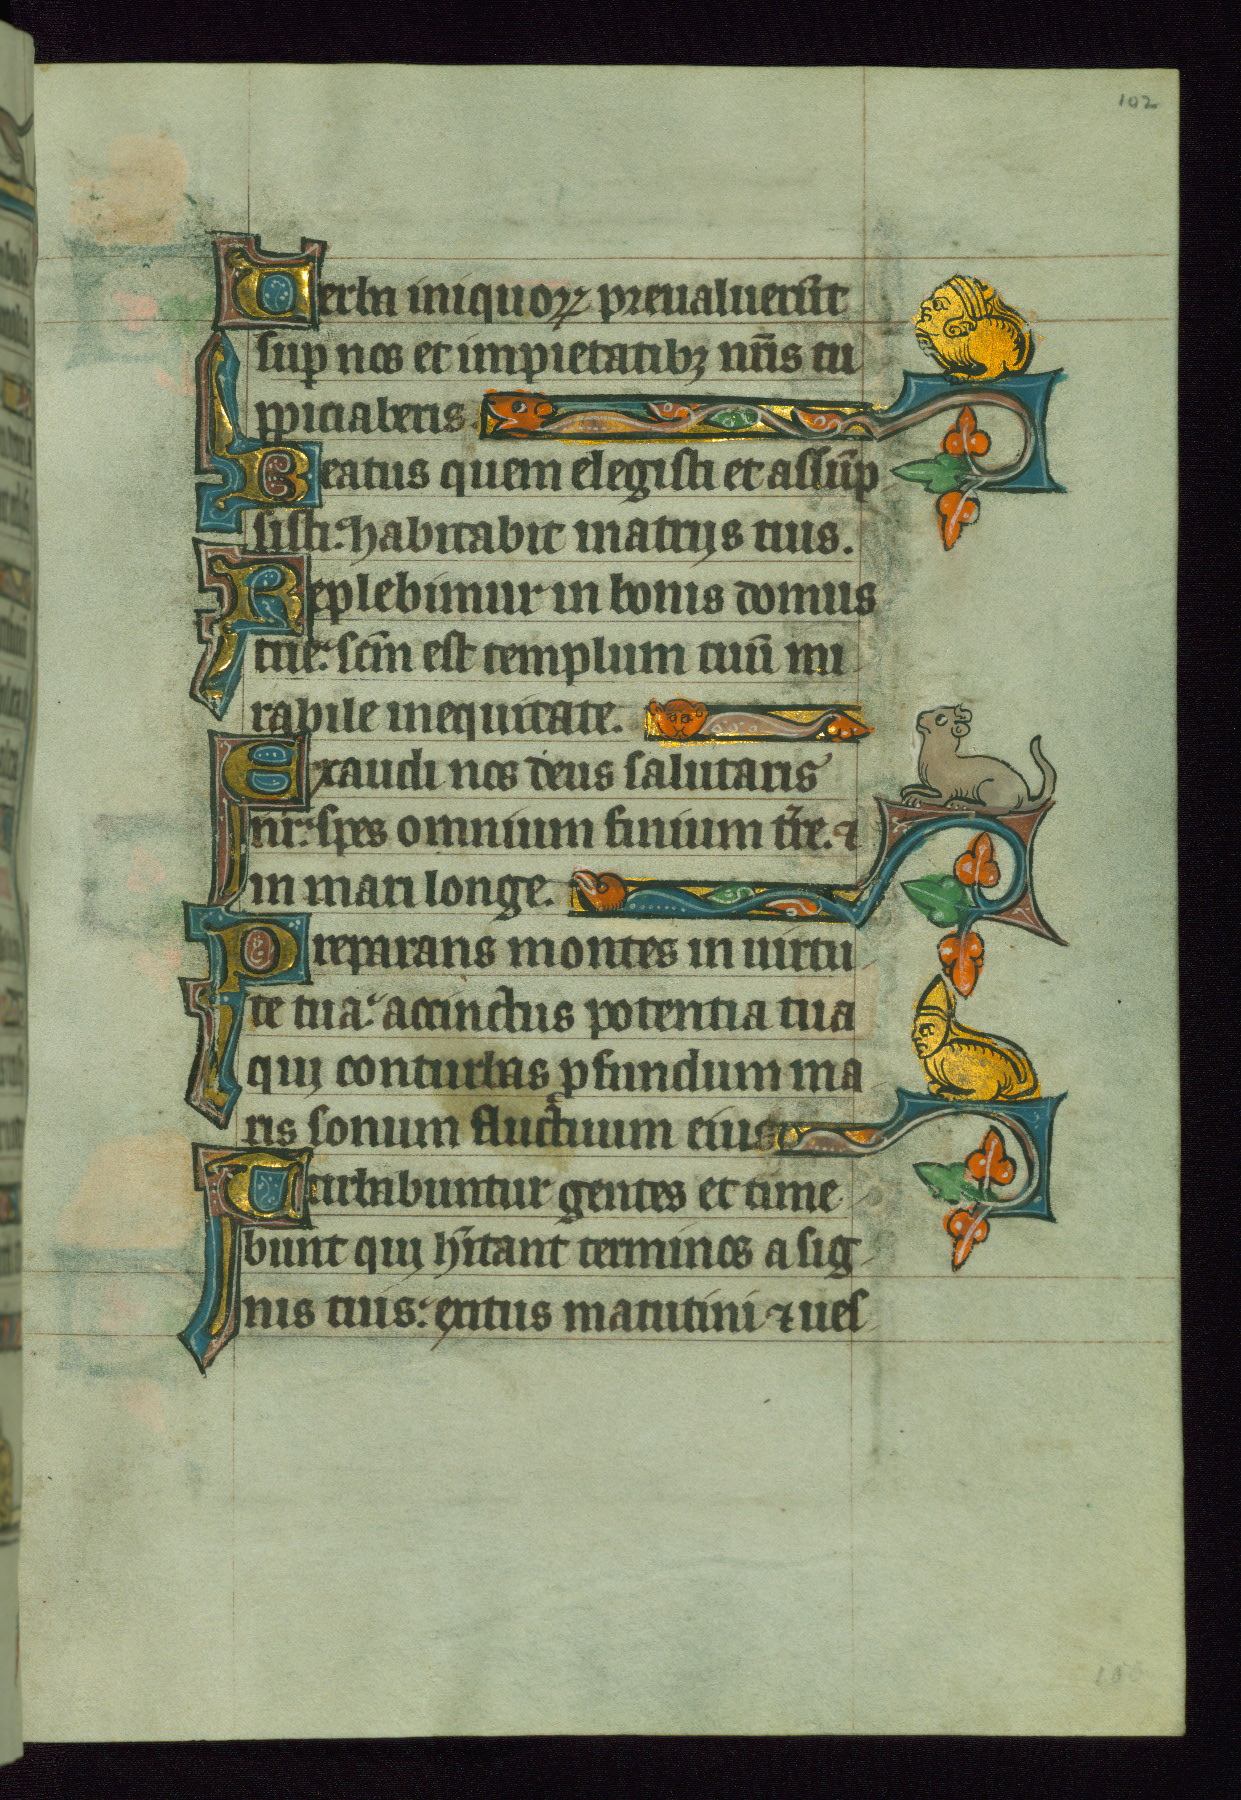 102
Uerba iniquoꝝ preualuer̄t
sup nos et impietatibꝫ nr̄is tu
ppiciaberis.
Beatus quem elegisti et assūp
sisti: habitabit inatrijs tuis.
Replebimur in bonis domus
tue: sc̄m est templum tuū mi
rabile inequitate.
Exaudi nos deus salutaris
nr̄: spes omnium finium tr̄e. ⁊
in mari longe.
Preparans montes in uirtu
te tua: accinctus potentia tua
qui conturbas pfundum ma
ris sonum fluctuum eius
Turbabuntur gentes et time
bunt qui hītant terminos a sig
nis tuis: exitus matutini ⁊ ues